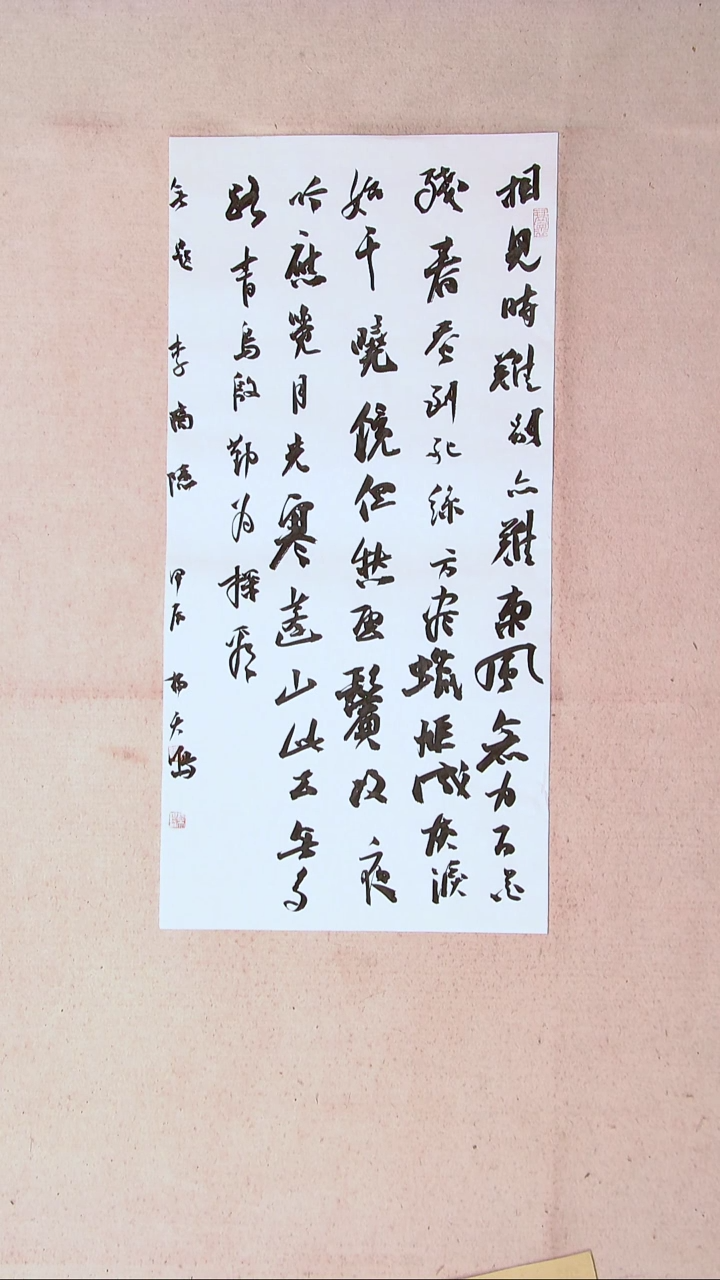 相見時難別亦難東風無力百花
殘春蚕到死絲方盡蠟炬成灰淚
始干曉鏡但愁雲鬢改夜
吟應覺月光寒蓬山此去無多
路青鳥殷勤為探看
無題 李商隱 甲辰